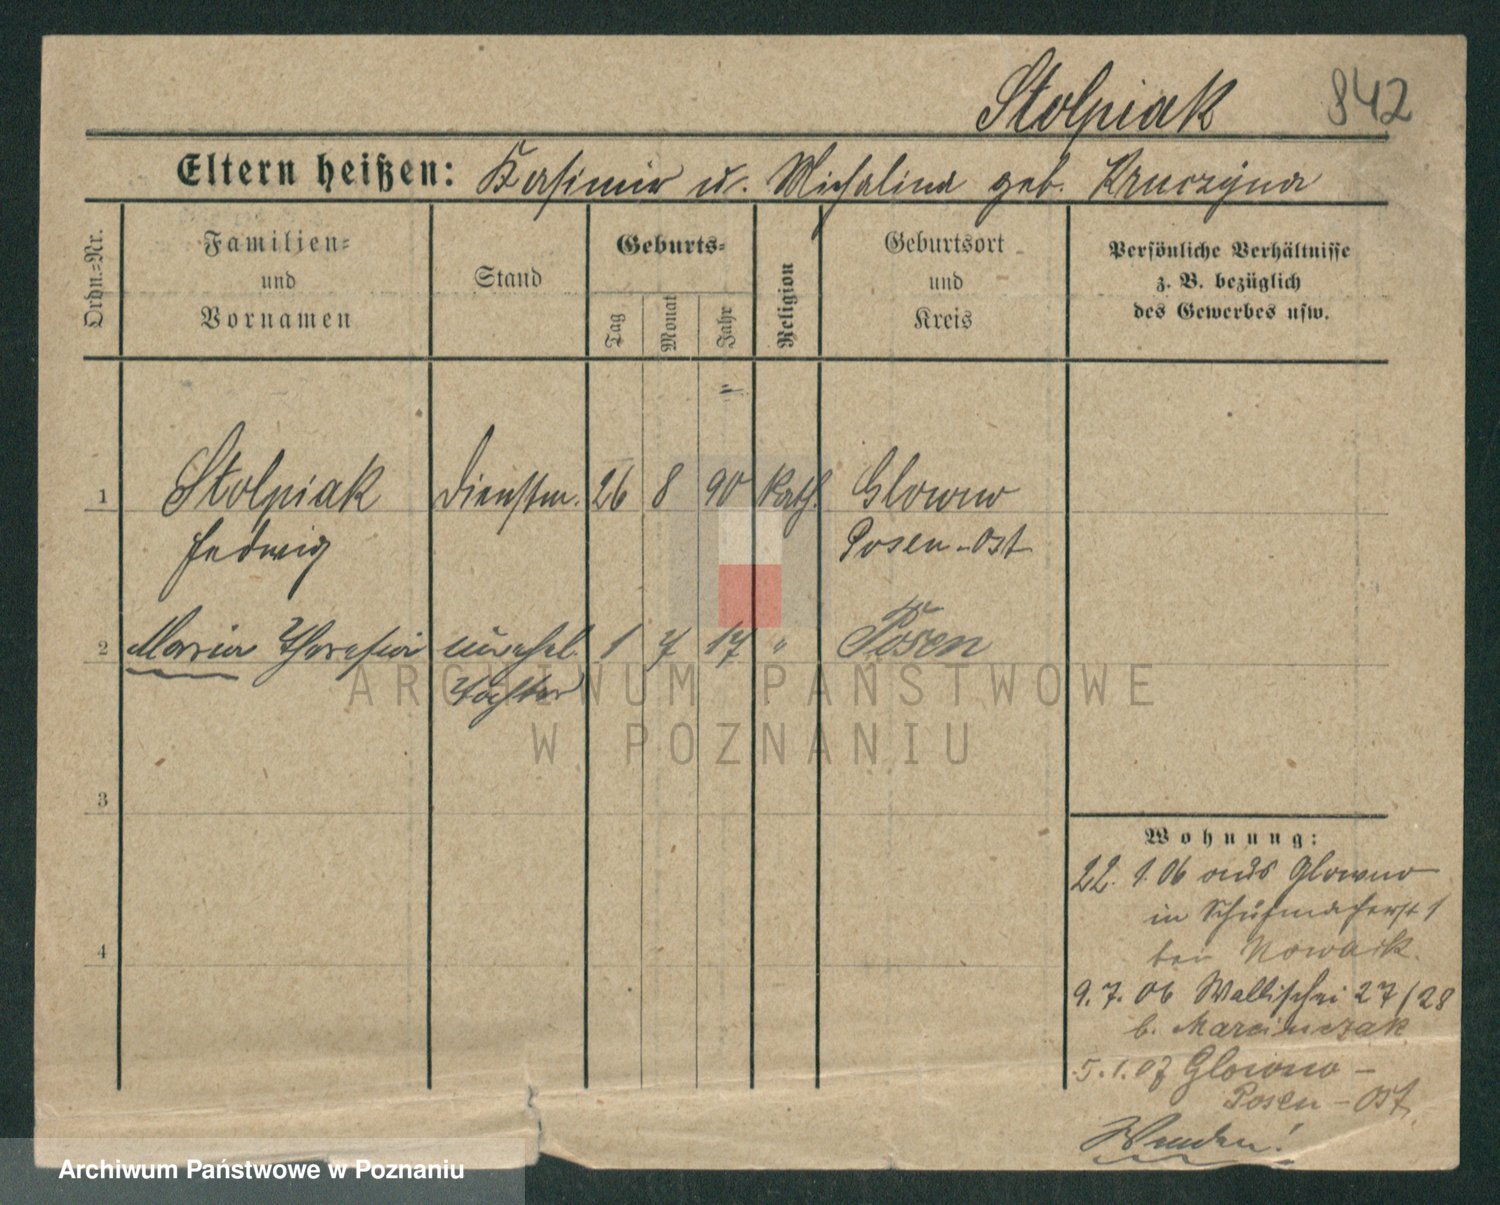 Stolpiak 842
Eltern heißen: Kasimir u. Michalina geb. Kruczyna
Ordn.-Nr.
Familien-
und
Vornamen
Stand
Geburts-
Tag
Monat
Jahr
Religion
Geburtsort
und
Kreis
Persönliche Verhältnisse
z. B. bezüglich
des Gewerbes usw.
1 Stolpiak Dienstm. 26 8 90 Kath. Glowno
Hedwig Posen-Ost
2 Maria Theresia unehel. 1 7 17 " Posen
Tochter
ARCHIWUM PAŃSTWOWE
W POZNANIU
3
4
Wohnung:
22. 1. 06 aus Glowno
in Schuhmacherst 1
bei Nowack.
9. 7. 06 Wallischei 27/28
b. Marcinczak
5. 1. 07 Glowno -
Posen - Ost
Wenden!
Archiwum Państwowe w Poznaniu